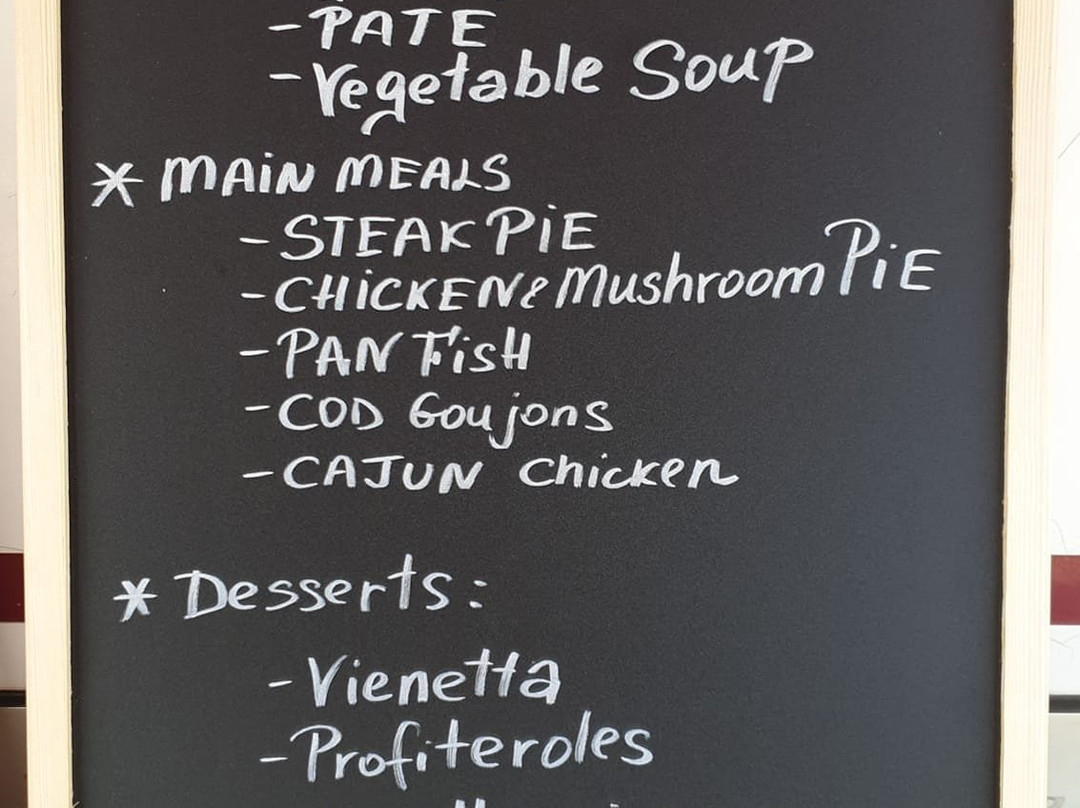 -PATE
-Vegetable Soup
* MAiN MEALS
-STEAK PiE
-CHiCKEN & Mushroom PiE
-PAN FisH
-COD Goujons
-CAJUN Chicken
* Desserts:
-Vienetta
-Profiteroles